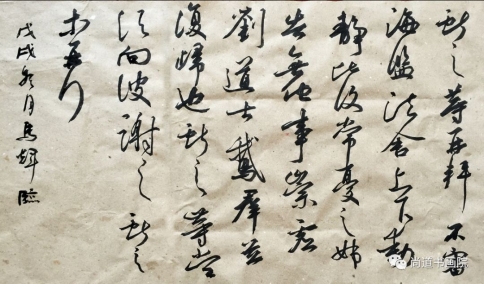 獻之等再拜 不審
海鹽諸舍上下動
靜比復常憂之姊
告無他事崇虛
劉道士鵝羣並
復歸也獻之等當
須向彼謝之獻之
等再拜
戊戌冬月馬輝臨
尚道书画院